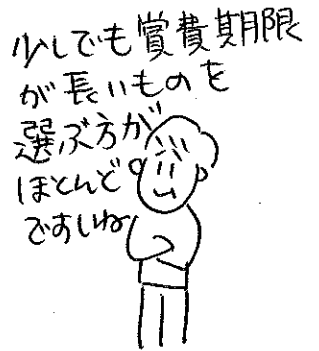 少しでも賞費期限
が長いものを
選ぶ方が
ほとんど
ですしね